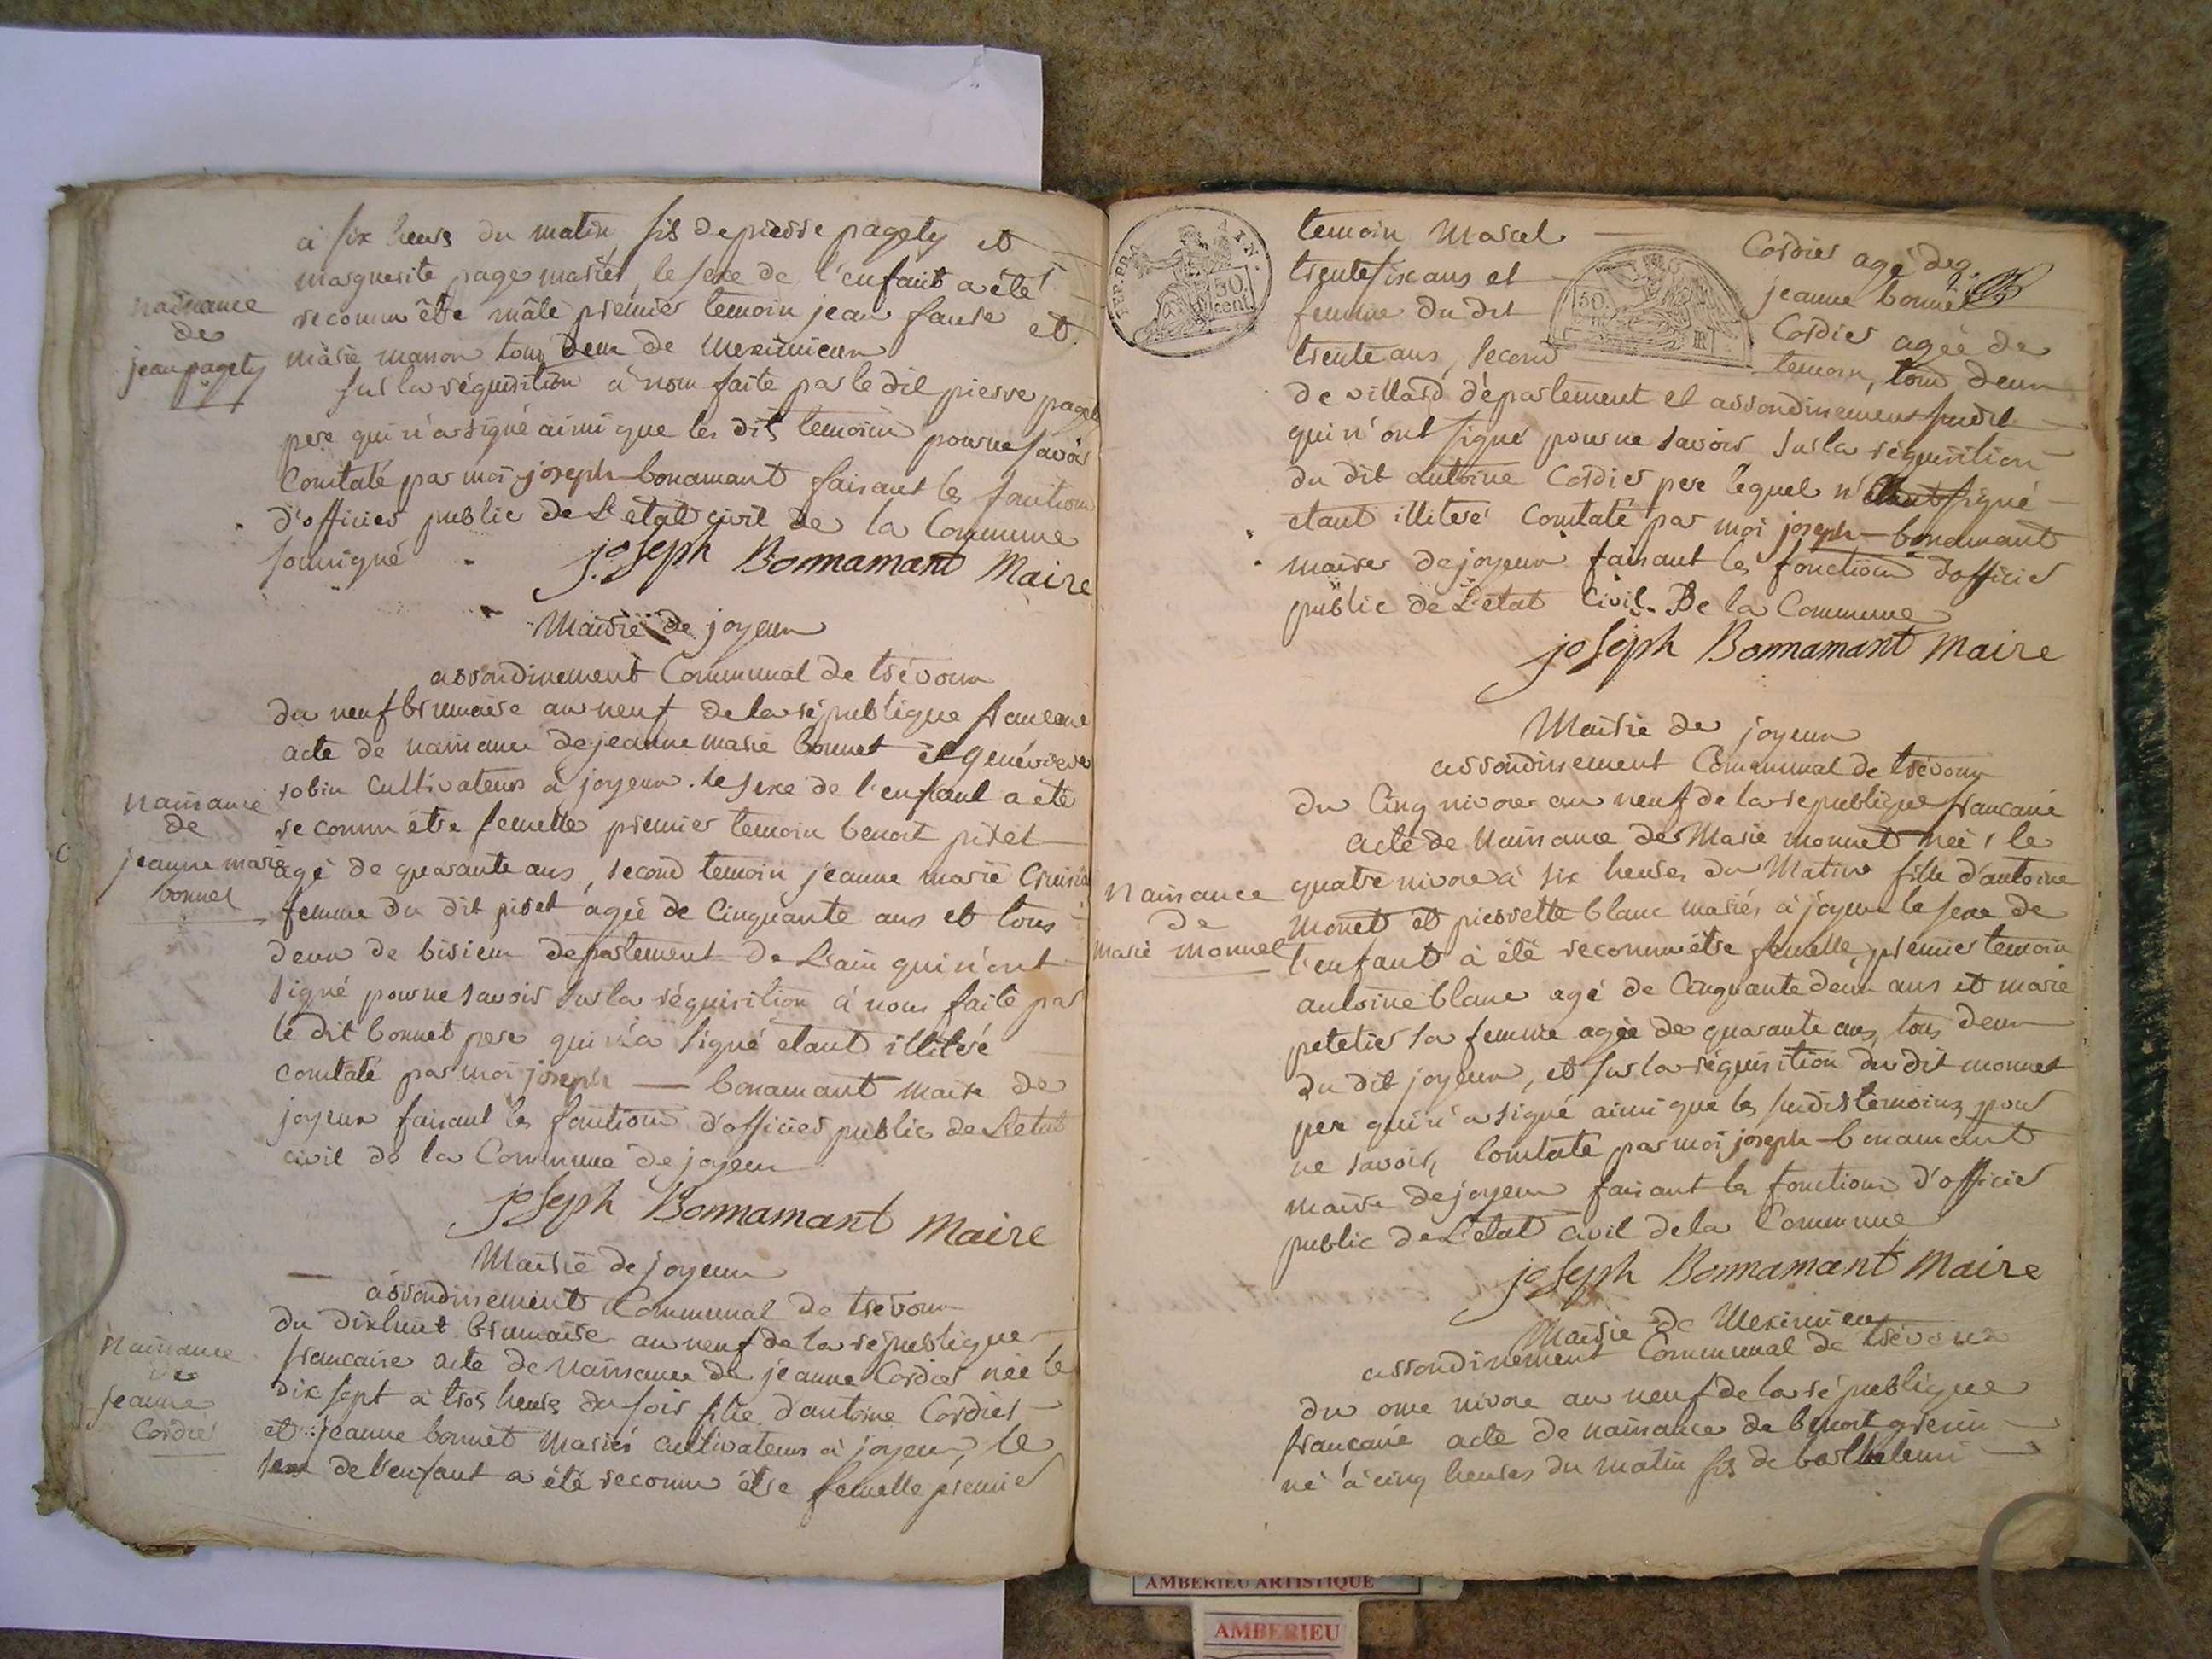 à six heurs du matin fils de pierre pagety et
marguerite page mariés, le sexe de l'enfant a été
reconnu être mâle premier temoin jean faure et
marie manon tous deux de Meximieux
sur la réquisition à nous faite par le dit pierre pagety
pere qui n'a signé ainsi que les dits temoins pour ne savoir
Constaté par moi joseph bonamant faisant les fonctions
d'officier public de L'etat civil de la Commune
soussigné
joseph Bonnamant Maire
naissance
de
jean pagety
Mairie de joyeux
arrondissement Communal de trévoux
du neuf brumaire an neuf de la république francaise
acte de naissance de jeanne marie bonnet et genévieve
robin cultivateurs à joyeux. le sexe de l'enfant a été
reconnu être femelle premier temoin benoit pitet
agé de quarante ans, second temoin jeanne marie
femme du dit pitet agée de Cinquante ans et tous
deux de bisieux département de L'ain qui n'ont
signé pour ne savoir sur la réquisition à nous faite par
le dit bonnet pere qui n'a signé etant illiteré
constaté par moi joseph — bonamant maire de
joyeux faisant les fonctions d'officier public de L'etat
civil de la Commune de joyeux
joseph Bonnamant Maire
naissance
de
jeanne marie
bonnet
Mairie de joyeux
arrondissement Communal de trévoux
du dixhuit brumaire an neuf de la république
francaise acte de naissance de jeanne Cordier née le
dix sept à trois heures du soir fille d'antoine Cordier
et jeanne bonnet Mariés cultivateurs à joyeux, le
sexe de l'enfant a été reconnu être femelle premier
Naissance
de
jeanne
Cordier
REP. FRA
50
cent
50
temoin Marcel Cordier agé de
trente six ans et jeanne bonnet
femme du dit Cordier agée de
trente ans, second temoin, tous deux
de villard département et arrondissement susdit
qui n'ont signé pour ne savoir sur la réquisition
du dit antoine Cordier pere lequel n'a signé
etant illiteré Constaté par moi joseph — bonamant
maire de joyeux faisant les fonctions d'officier
public de L'etat Civil. De la Commune
joseph Bonnamant Maire
Mairie de joyeux
arrondissement Communal de trévoux
du Cinq nivose an neuf de la republique francaise
acte de naissance de Marie monnet née le
quatre nivose à six heures du Matin fille d'antoine
Monet et pierrette blanc mariés à joyeux le sexe de
l'enfant à été reconnu être femelle, premier temoin
antoine blanc agé de Cinquante deux ans et marie
petetier sa femme agée de quarante ans, tous deux
du dit joyeux, et sur la réquisition du dit monnet
pere qui n'a signé ainsi que les susdits temoins pour
ne savoir, Constaté par moi joseph — bonamant
maire de joyeux faisant les fonctions d'officier
public de L'etat civil de la Commune
joseph Bonnamant Maire
Naissance
de
marie monnet
Mairie de Meximieux
arrondissement Communal de trévoux
du onze nivose an neuf de la république
francaise acte de naissance de benoit
né à cinq heures du matin fils de barthelemi
AMBERIEU ARTISTIQUE
AMBERIEU